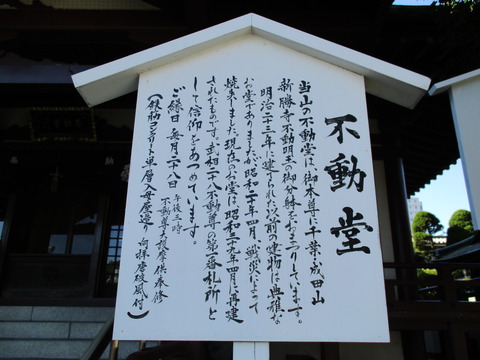 不動堂
当山の不動堂は、御本尊に千葉・成田山
新勝寺不動明王の御分躰をおまつりしています。
明治二十三年に建てられた以前の建物は典雅な
お堂でありましたが昭和二十年四月、戦災によって
焼失しました。現在のお堂は昭和三十九年四月に再建
されたものです。武相二十八不動尊の第一番札所と
して信仰をあつめています。
ご縁日 毎月二十八日 午後三時 不動尊大護摩供奉修
(鉄筋コンクリート単層入母屋造り 向拝唐破風付)